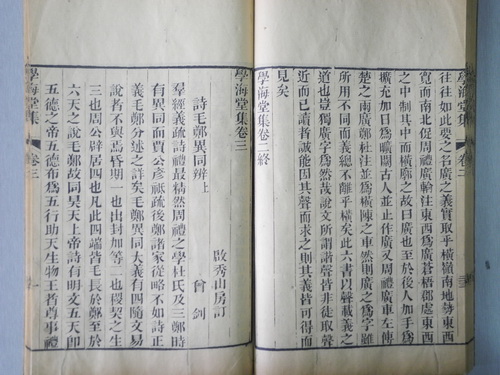 學海堂集
卷二
往往如此要之名廣之義實取乎橫嶺南地勢東西
寬而南北促周禮廣輪注東西為廣蒼梧郡處東西
之中制其中而橫廓之故曰廣也至於後人加手為
擴充加日為曠闊古人並止作廣又周禮車僕左傳
楚之兩廣鄭杜注並為橫陳之車然則廣之為字雖
所用不同而義總不離乎橫矣此六書以聲載義之
道也豈獨廣字為然哉說文所謂諧聲皆非徒取聲
近而已讀者誠能因其聲而求之則其義皆可得而
見矣
學海堂集卷二終
學海堂集卷三
啟秀山房訂
詩毛鄭異同辨上
曾釗
羣經義疏詩禮最精然周禮之學杜氏及三鄭時
有異同而賈公彥祗疏後鄭諸家從略不如詩正
義毛鄭分述之詳矣毛鄭異同大義有四隨文易
說者不與焉昏期一也出封加等二也稷契之生
三也周公辟居四也凡此四端皆毛長於鄭至於
六天之說毛鄭故同昊天上帝詩有明文五天即
五德之帝五德布為五行助天生物王者尊事禮
學海堂集
卷三